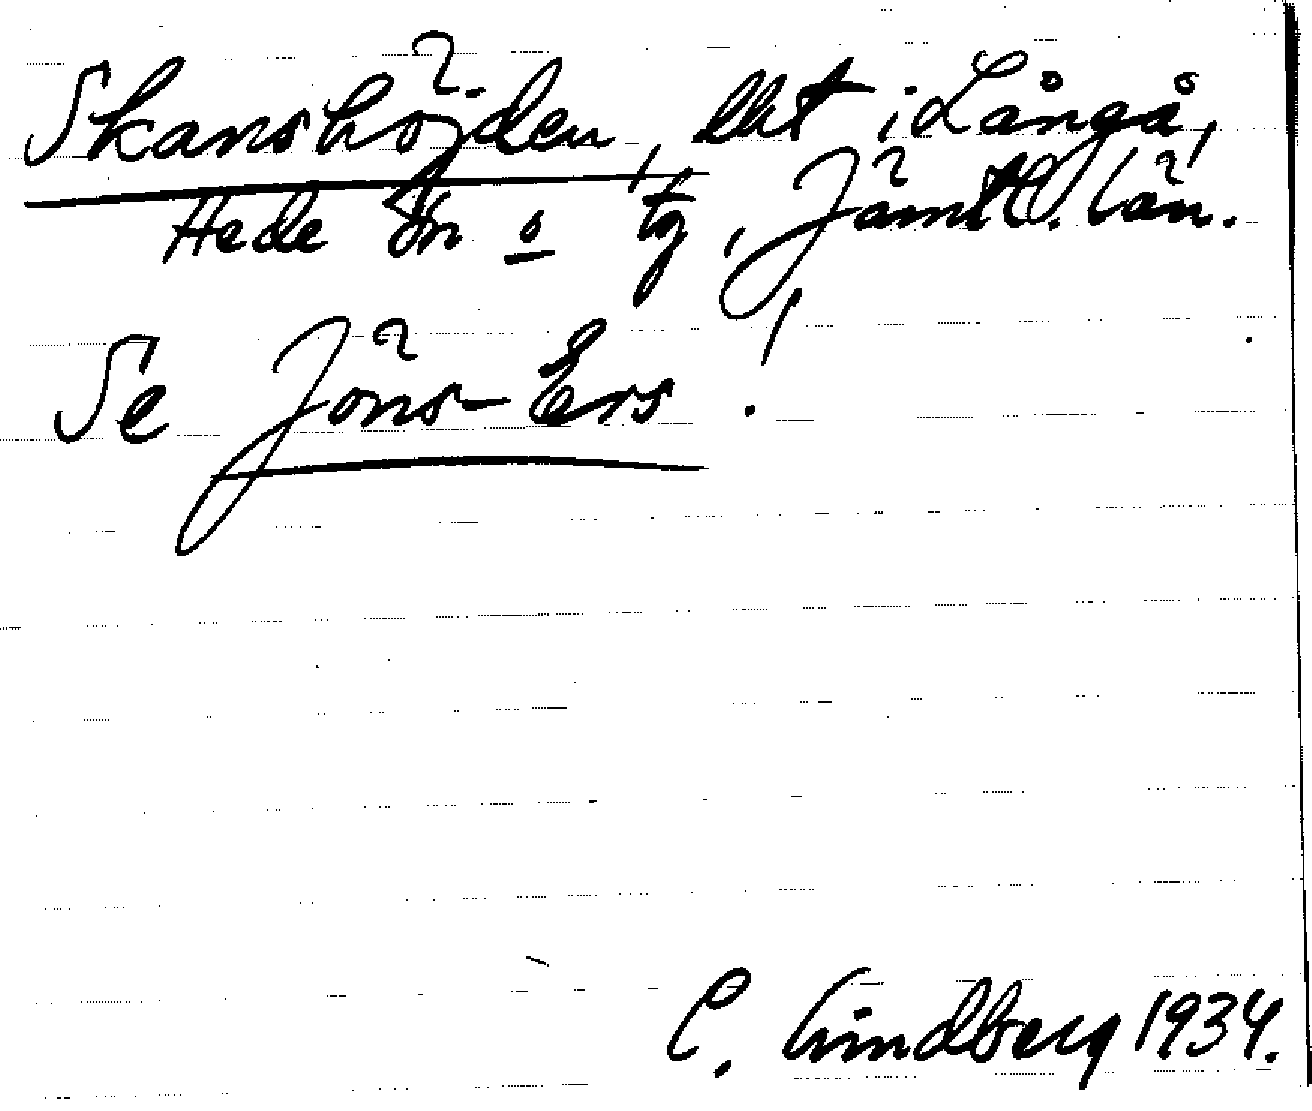 Skanshöjden, lht i Långå,
Hede sn o tg, Jämtl. län.
Se Jöns-Ers!
C. Lindberg 1934.